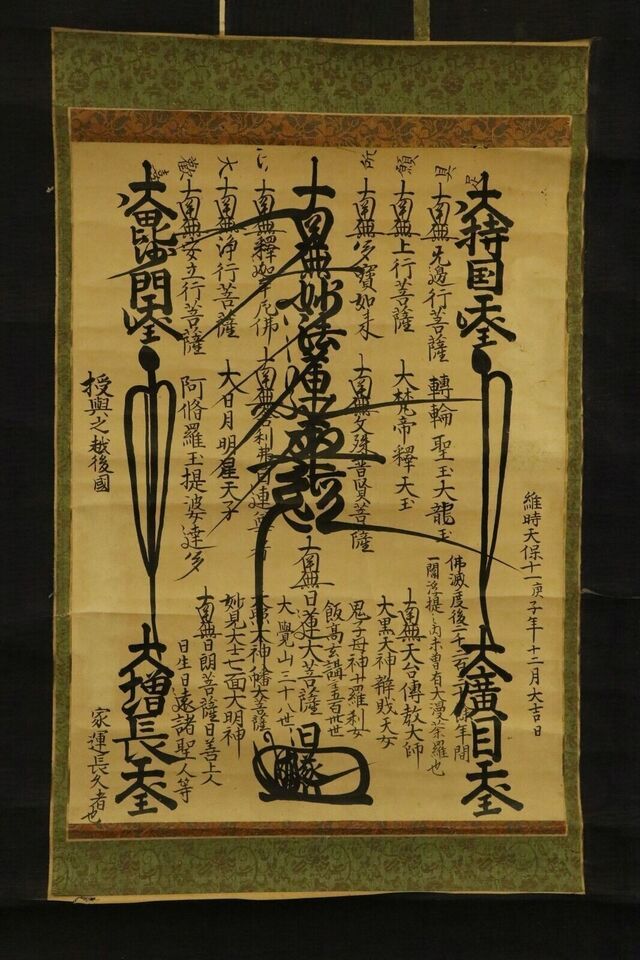 大持国天王
維時天保十一庚子年十二月大吉日
大廣目天王
南無无邊行菩薩
轉輪聖王大龍王
佛滅度後二千二百二十餘年間
一閻浮提之内未曾有大漫荼羅也
南無上行菩薩
大梵帝釋大王
南無天台傳教大師
大黒天神辨財天女
南無多寶如来
南無文殊普賢菩薩
鬼子母神十羅刹女
飯高玄講主五百世
南無妙法蓮華経
南無日蓮大菩薩
南無釋迦牟尼佛
南無舎利弗目連尊者
大覺山三十八世
八幡大菩薩
南無浄行菩薩
大日月明星天子
妙見大士七面大明神
南無安立行菩薩
阿脩羅王提婆達多
南無日朗菩薩日善上人
日生日遠諸聖人等
大毘沙門天王
大増長天王
授與之越後國
家運長久者也